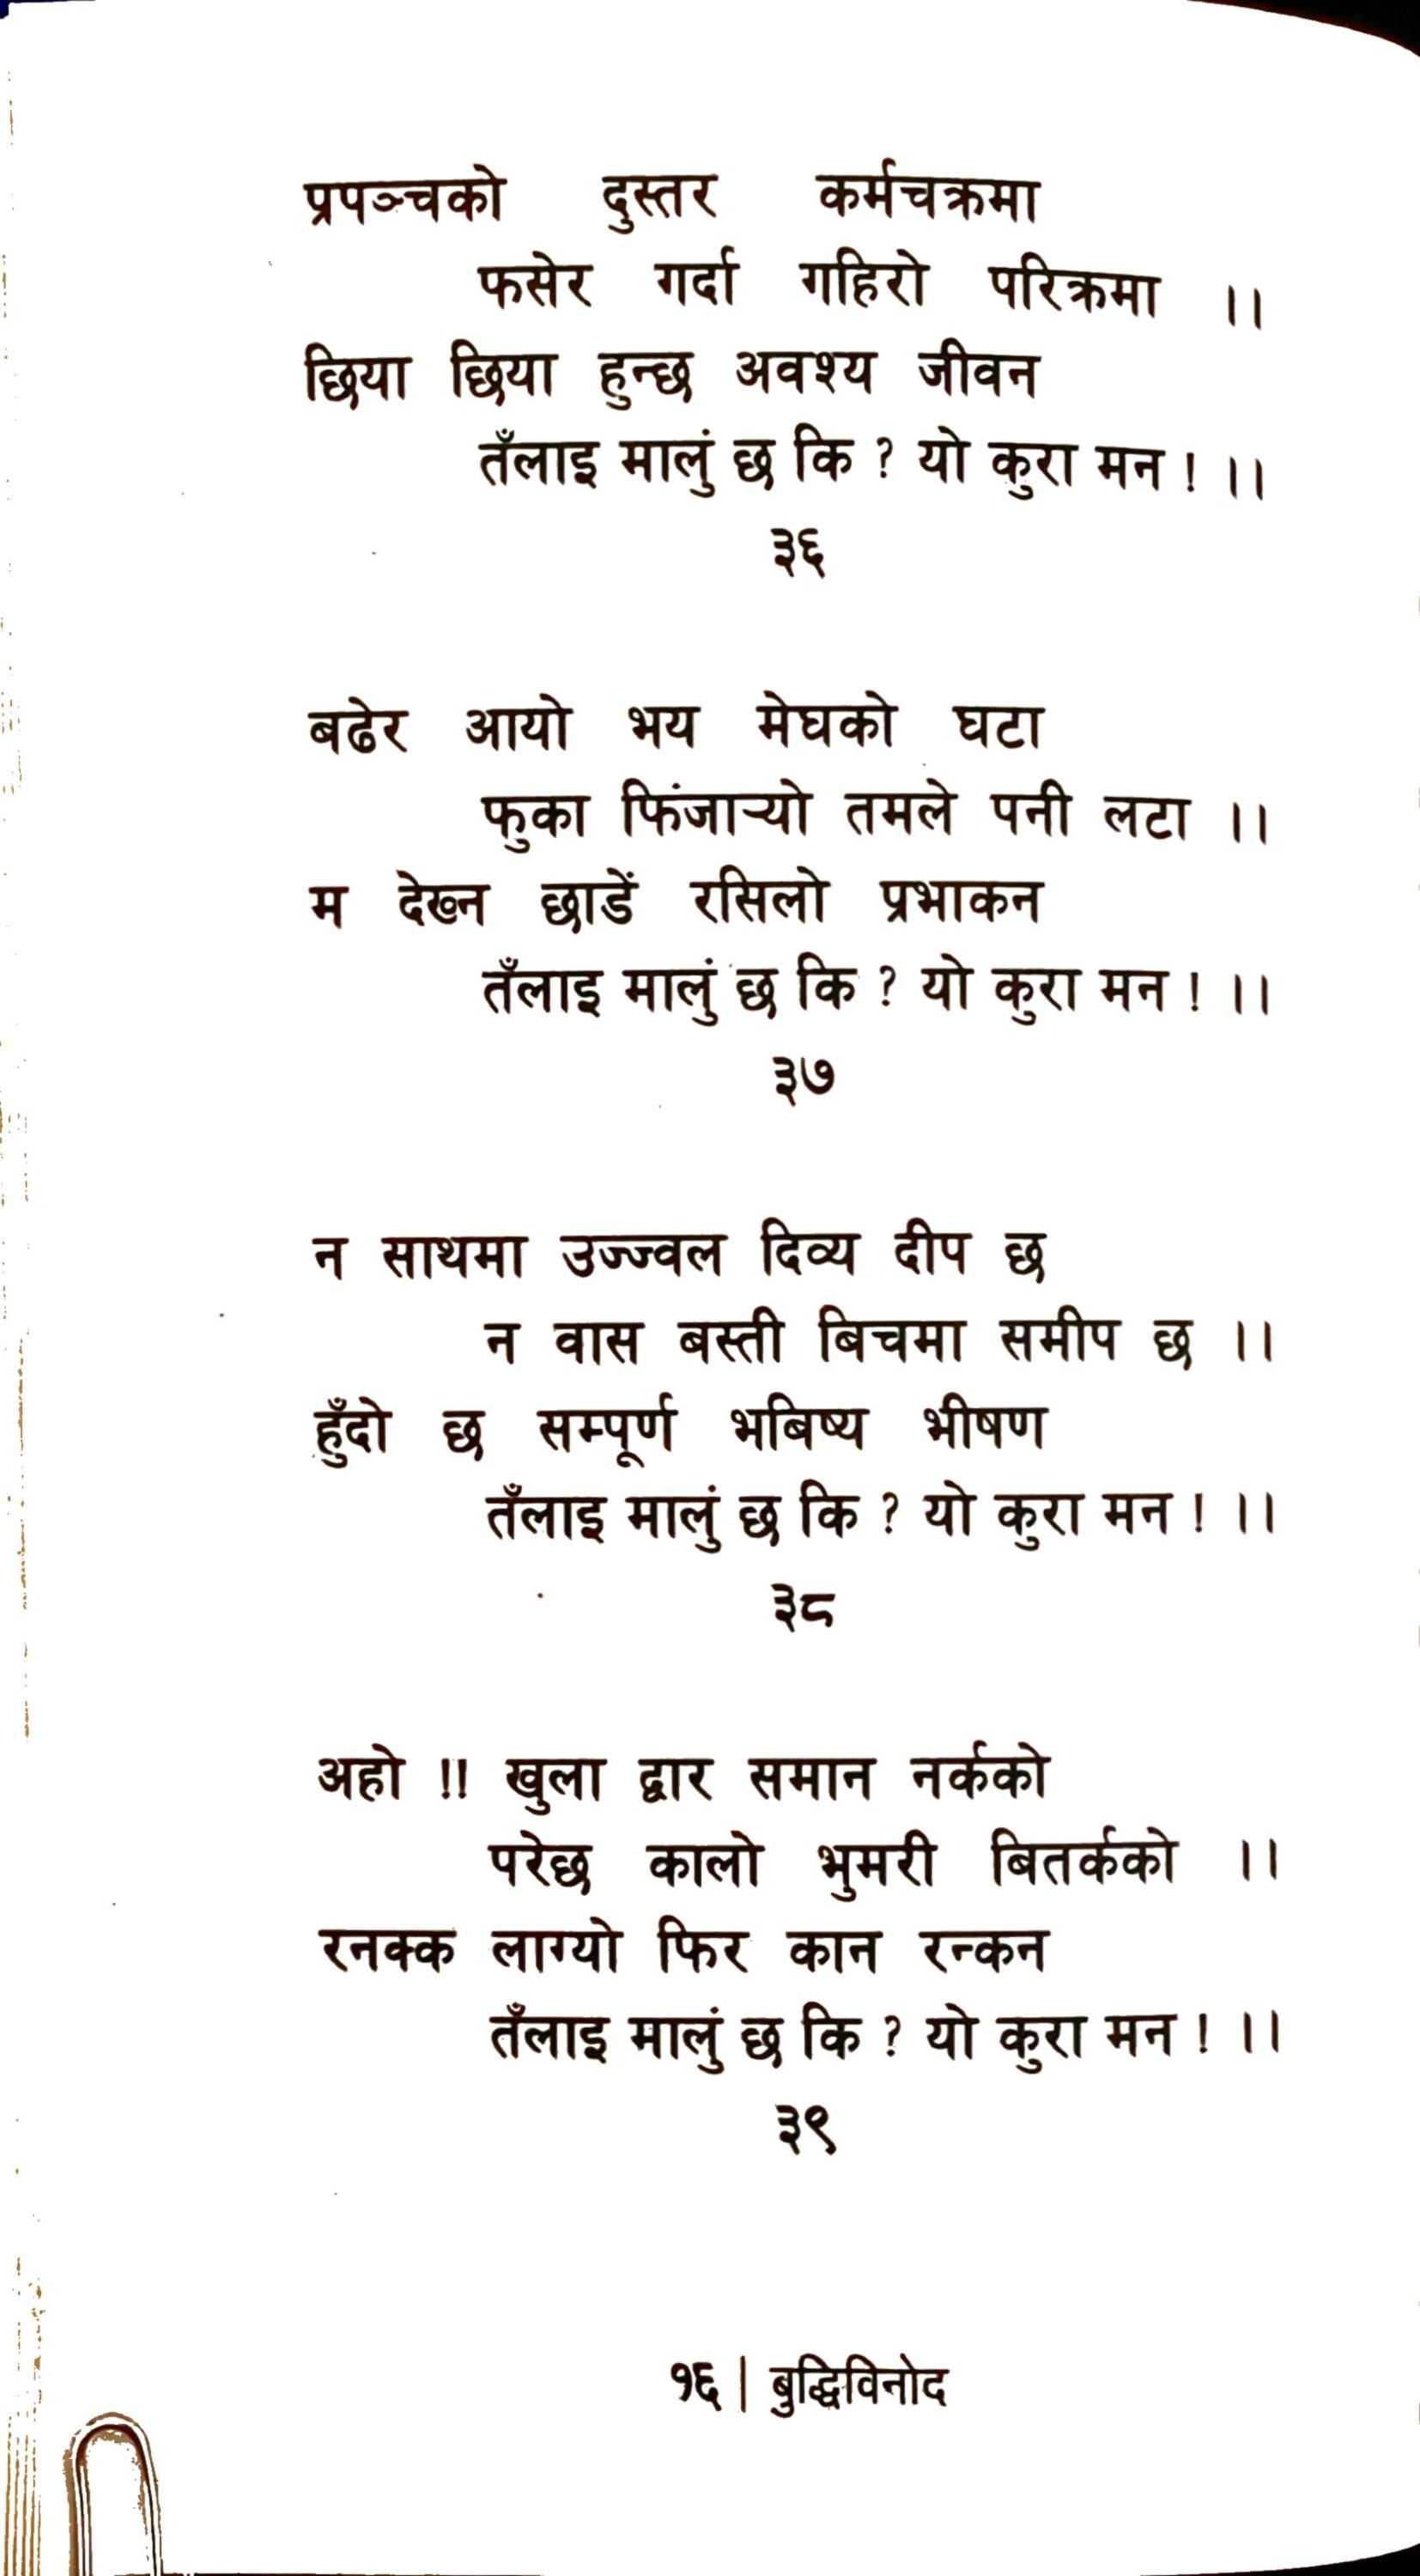 प्रपञ्चको दुस्तर कर्मचक्रमा
फसेर गर्दा गहिरो परिक्रमा ।।
छिया छिया हुन्छ अवश्य जीवन
तँलाइ मालुं छ कि ? यो कुरा मन ! ।।
३६
बढेर आयो भय मेघको घटा
फुका फिंजार्‍यो तमले पनी लटा ।।
म देख्न छाडें रसिलो प्रभाकन
तँलाइ मालुं छ कि ? यो कुरा मन ! ।।
३७
न साथमा उज्ज्वल दिव्य दीप छ
न वास बस्ती बिचमा समीप छ ।।
हुँदो छ सम्पूर्ण भबिष्य भीषण
तँलाइ मालुं छ कि ? यो कुरा मन ! ।।
३८
अहो !! खुला द्वार समान नर्कको
परेछ कालो भुमरी बितर्कको ।।
रनक्क लाग्यो फिर कान रन्कन
तँलाइ मालुं छ कि ? यो कुरा मन ! ।।
३९
१६ | बुद्धिविनोद